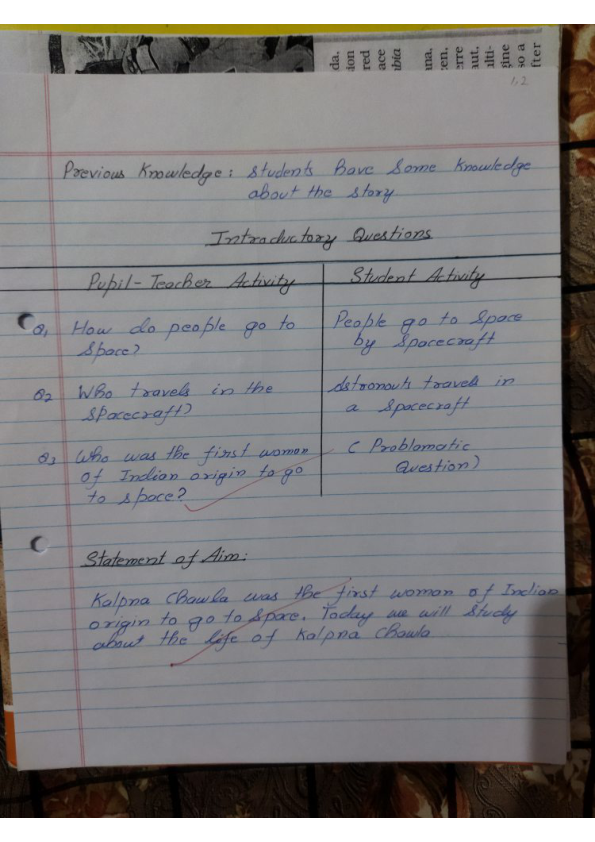 da,
sion
red
ace
mbia
una,
zen,
erre
aut,
ulti-
gine
so a
fter
1,2
Previous Knowledge: Students have Some Knowledge
about the story
Introductory Questions
Pupil-Teacher Activity
Student Activity
Q1 How do people go to
Space?
People go to Space
by Spacecraft
Q2 Who travels in the
Spacecraft?
Astronouts travels in
a Spacecraft
Q3 Who was the first woman
of Indian origin to go
to space?
( Problomatic
Question)
Statement of Aim:
Kalpna Chawla was the first woman of Indian
origin to go to Space. Today we will Study
about the life of Kalpna Chawla